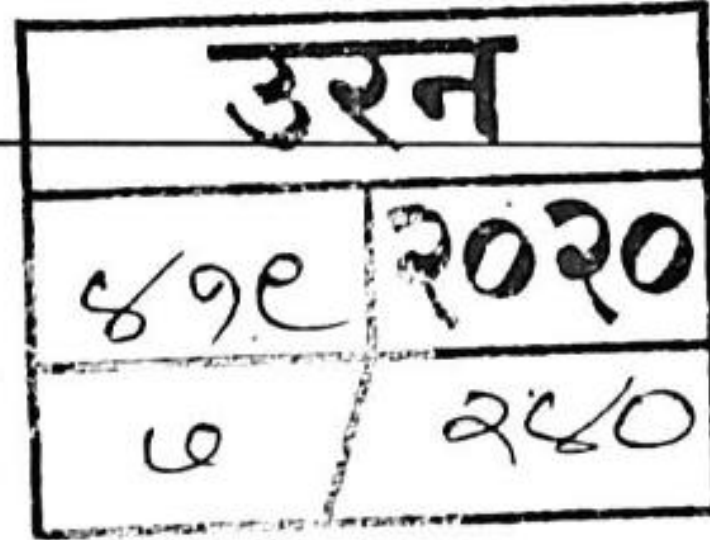 उरन
४१९ २०२०
७ २४०